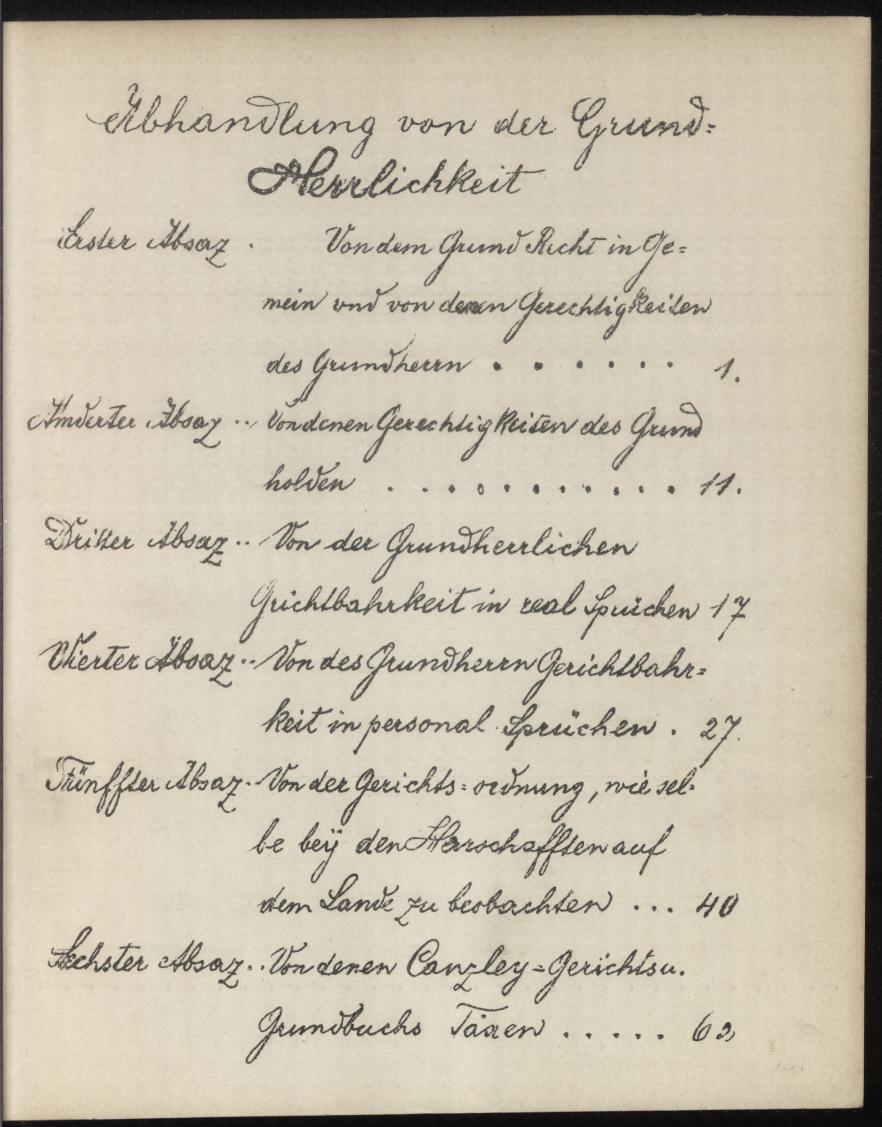 Abhandlung von der Grund=
Herrlichkeit
Erster Absaz . Von dem Grund Recht in Ge=
mein vnd von denen Gerechtigkeiten
des Grundherrn . . . . . . 1.
Anderter Absaz .. Von denen Gerechtigkeiten des Grund
holden . . . . . . . . . . . 11.
Dritter Absaz .. Von der Grundherrlichen
Grichtbahrkeit in real Sprüchen 17
Vierter Absaz .. Von des Grundherrn Gerichtbahr=
keit in personal Sprüchen . 27.
Fünffter Absaz . Von der Gerichts=ordnung, wie sel=
be beÿ den Herschafften auf
dem Lande zu beobachten ... 40
Sechster Absaz .. Von denen Canzley=Gerichts u.
Grundbuchs Taxen . . . . . 62